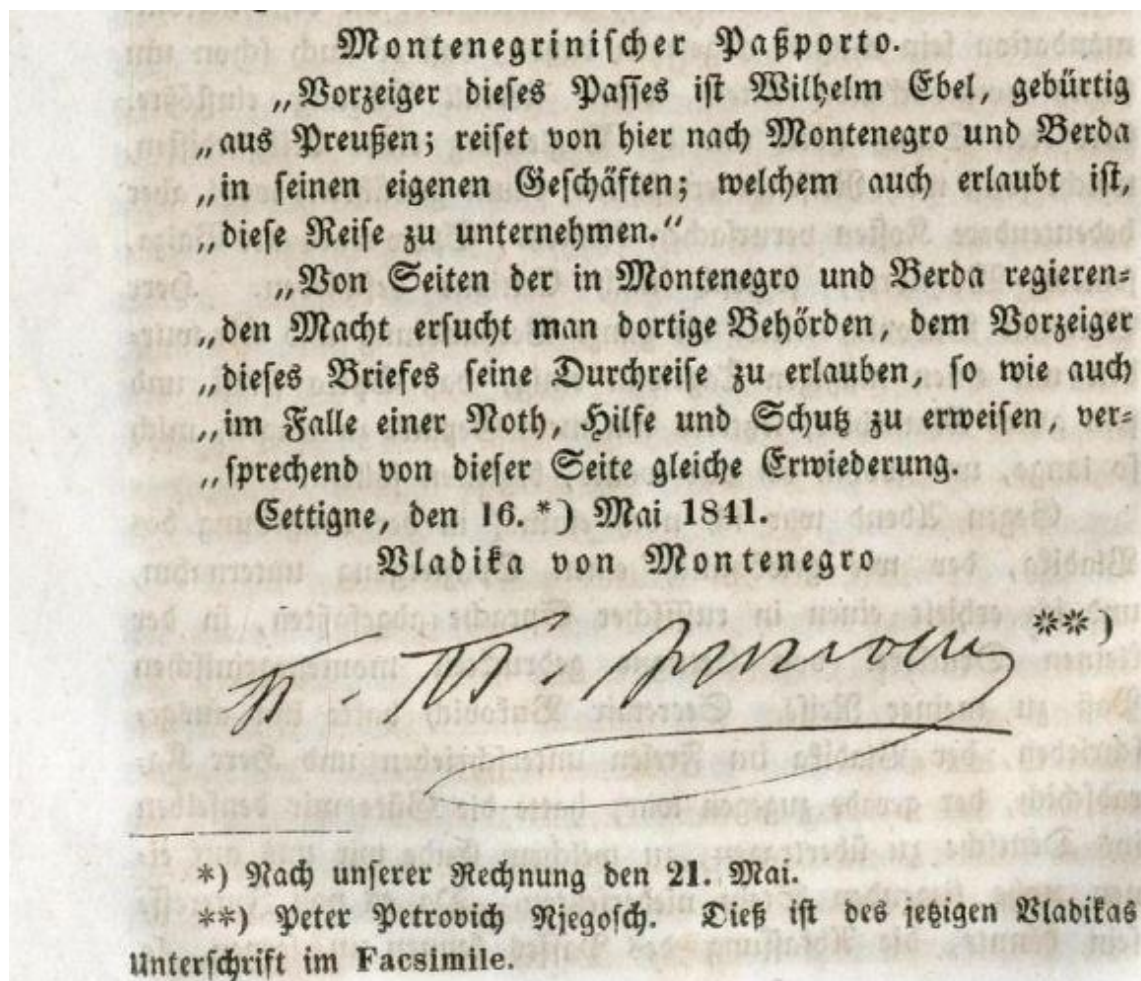 Montenegrinischer Paßporto.
„Vorzeiger dieses Passes ist Wilhelm Ebel, gebürtig
„aus Preußen; reiset von hier nach Montenegro und Berda
„in seinen eigenen Geschäften; welchem auch erlaubt ist,
„diese Reise zu unternehmen.“
„Von Seiten der in Montenegro und Berda regieren-
„den Macht ersucht man dortige Behörden, dem Vorzeiger
„dieses Briefes seine Durchreise zu erlauben, so wie auch
„im Falle einer Noth, Hilfe und Schutz zu erweisen, ver-
„sprechend von dieser Seite gleiche Erwiederung.
Cettigne, den 16. *) Mai 1841.
Vladika von Montenegro
**)
*) Nach unserer Rechnung den 21. Mai.
**) Peter Petrovich Njegosch. Dieß ist des jetzigen Vladikas
Unterschrift im Facsimile.